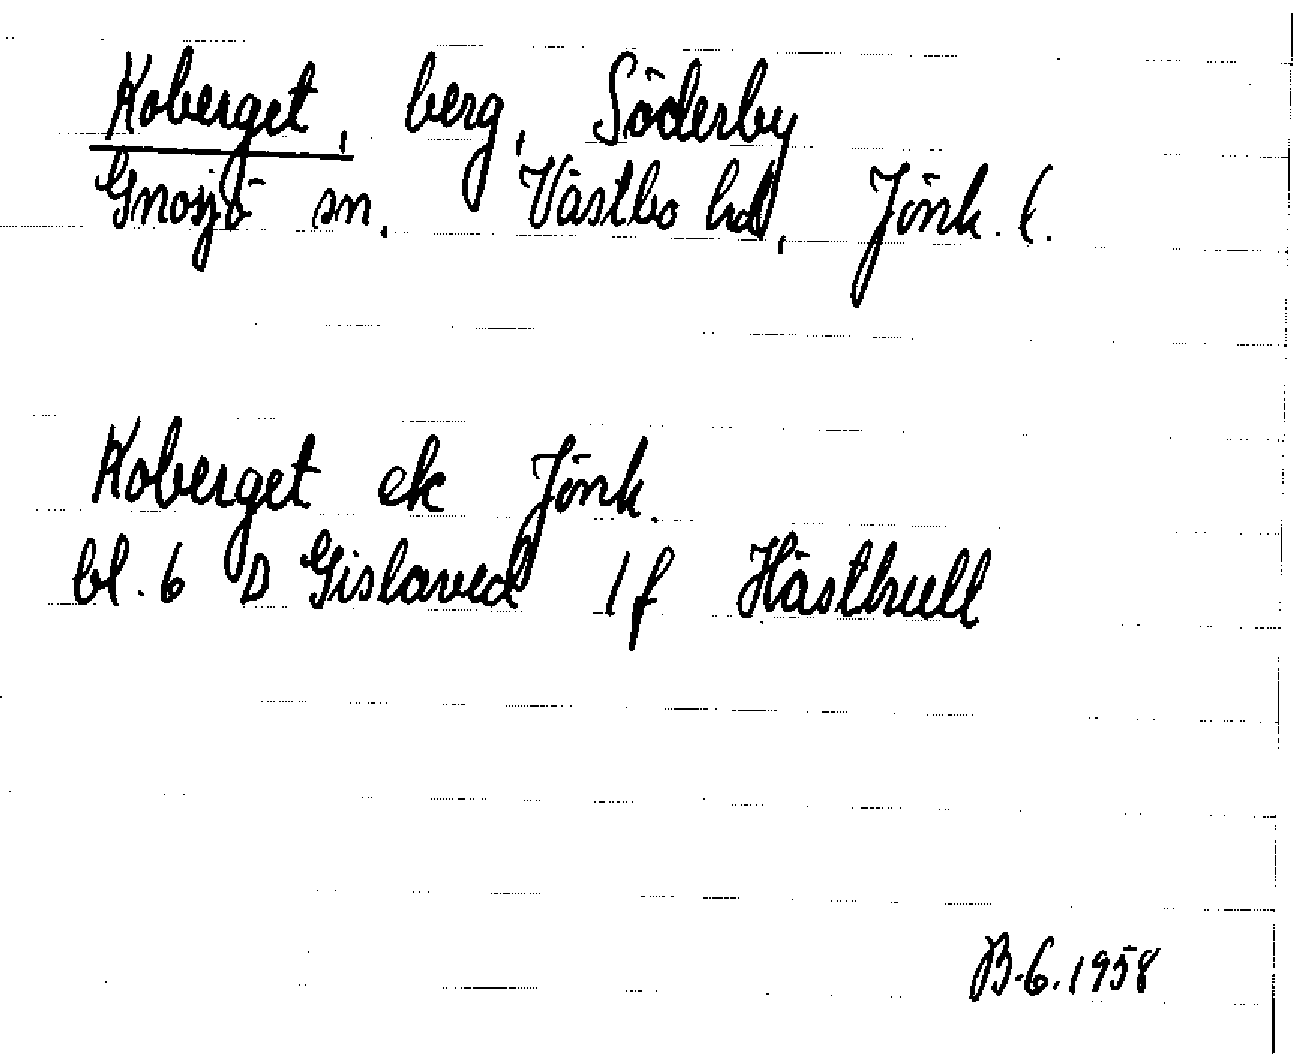 Koberget, berg, Söderby
Gnosjö sn. Västbo hd, Jönk. l.
Koberget ek Jönk.
bl. 6 D Gislaved 1 f Hästhult
B.G. 1958